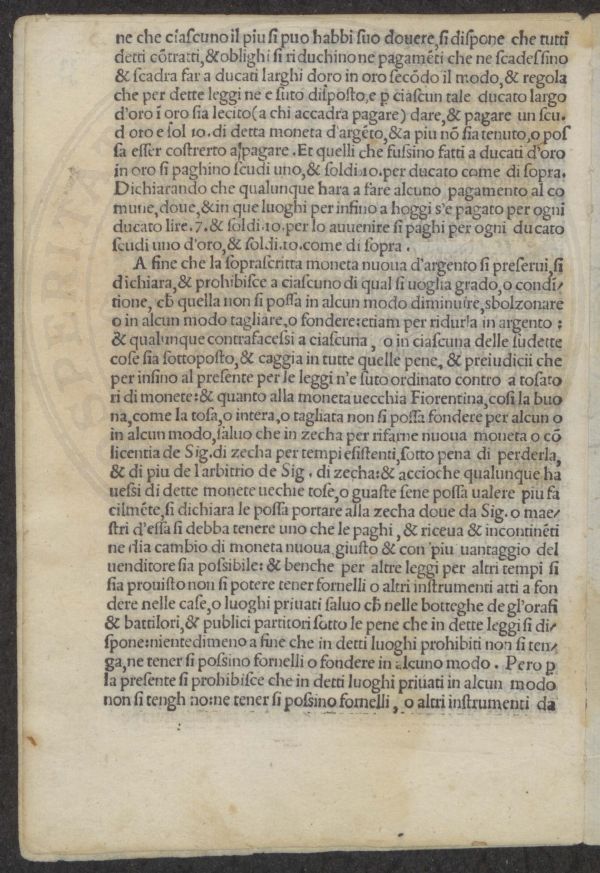 ne che ciascuno il piu si puo habbi suo douere, si dispone che tutti
detti cōtratti, & oblighi si riduchino ne pagamēti che ne scadessino
& scadra far a ducati larghi doro in oro secōdo il modo, & regola
che per dette leggi ne e suto disposto, e ꝑ ciascun tale ducato largo
d'oro ī oro sia lecito (a chi accadra pagare) dare, & pagare un scu.
d oro e sol 10. di detta moneta d'argēto, & a piu nō sia tenuto, o pos
sa esser costretto a pagare. Et quelli che fussino fatti a ducati d'oro
in oro si paghino scudi uno, & soldi 10. per ducato come di sopra.
Dichiarando che qualunque hara a fare alcuno pagamento al co
mune, doue, & in que luoghi per infino a hoggi s'e pagato per ogni
ducato lire. 7. & soldi .10. per lo auuenire si paghi per ogni ducato
scudi uno d'oro, & soldi .10. come di sopra.
A fine che la soprascritta moneta nuoua d'argento si preserui, si
dichiara, & prohibisce a ciascuno di qual si uoglia grado, o condi/
tione, ch̄ quella non si possa in alcun modo diminuire, sbolzonare
o in alcun modo tagliare, o fondere: etiam per ridurla in argento:
& qualunque contrafacessi a ciascuna, o in ciascuna delle sudette
cose sia sottoposto, & caggia in tutte quelle pene, & preiudicii che
per insino al presente per le leggi n'e suto ordinato contro a tosato
ri di monete: & quanto alla moneta uecchia Fiorentina, cosi la buo
na, come la tosa, o intera, o tagliata non si possa fondere per alcun o
in alcun modo, saluo che in zecha per rifarne nuoua moneta o cō
licentia de Sig. di zecha per tempi esistenti, sotto pena di perderla,
& di piu de l arbitrio de Sig. di zecha: & accioche qualunque ha
uessi di dette monete uechie tose, o guaste sene possa ualere piu fa
cilmēte, si dichiara le possa portare alla zecha doue da Sig. o mae/
stri d'essa si debba tenere uno che le paghi, & riceua & incontinēti
ne dia cambio di moneta nuoua giusto & con piu uantaggio del
uenditore sia possibile: & benche per altre leggi per altri tempi si
sia prouisto non si potere tener fornelli o altri instrumenti atti a fon
dere nelle case, o luoghi priuati saluo ch̄ nelle botteghe de gl'orafi
& battilori, & publici partitori sotto le pene che in dette leggi si di/
spone: nientedimeno a fine che in detti luoghi prohibiti non si ten/
ga, ne tener si possino fornelli o fondere in alcuno modo. Pero ꝑ
la presente si prohibisce che in detti luoghi priuati in alcun modo
non si tengh no: ne tener si possino fornelli, o altri instrumenti da
SPERITA